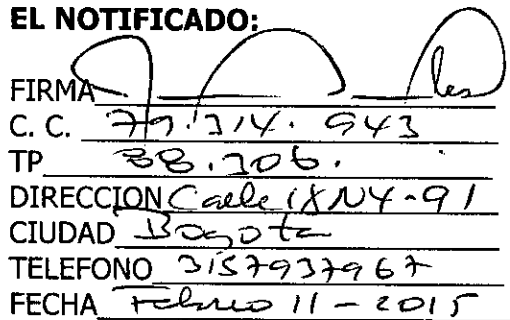 EL NOTIFICADO:
FIRMA
C. C. 79.314.943
TP 38.306.
DIRECCION Calle 18 N 4-91
CIUDAD Bogota
TELEFONO 3157937967
FECHA Febrero 11-2015